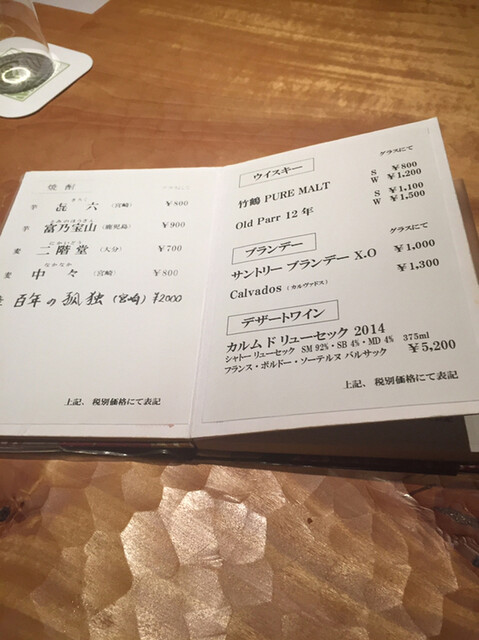 焼酎
グラスにて
芋 㐂六 （宮崎） ¥800
きろく
芋 富乃宝山 （鹿児島） ¥900
とみのほうざん
麦 二階堂 （大分） ¥700
にかいどう
麦 中々 （宮崎） ¥800
なかなか
百年の孤独 (宮崎) ¥2000
上記、税別価格にて表記
ウイスキー
グラスにて
竹鶴 PURE MALT S ¥800
W ¥1,200
Old Parr 12 年 S ¥1,100
W ¥1,500
ブランデー
グラスにて
サントリー ブランデー X.O ¥1,000
Calvados （カルヴァドス） ¥1,300
デザートワイン
カルム ド リューセック 2014
シャトー リューセック SM 92%・SB 4%・MD 4% 375ml
フランス・ボルドー・ソーテルヌ バルサック ¥5,200
上記、税別価格にて表記